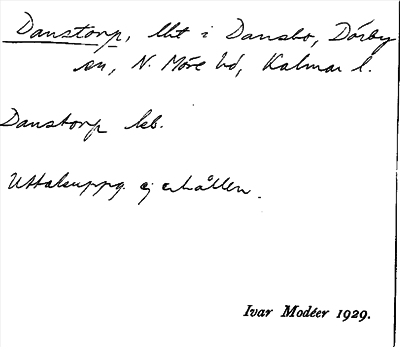 Danstorp, lht i Dansbo, Dörby
sn, N. Möre hd, Kalmar l.
Danstorp ksb.
Uttalsuppg. ej erhållen.
Ivar Modéer 1929.